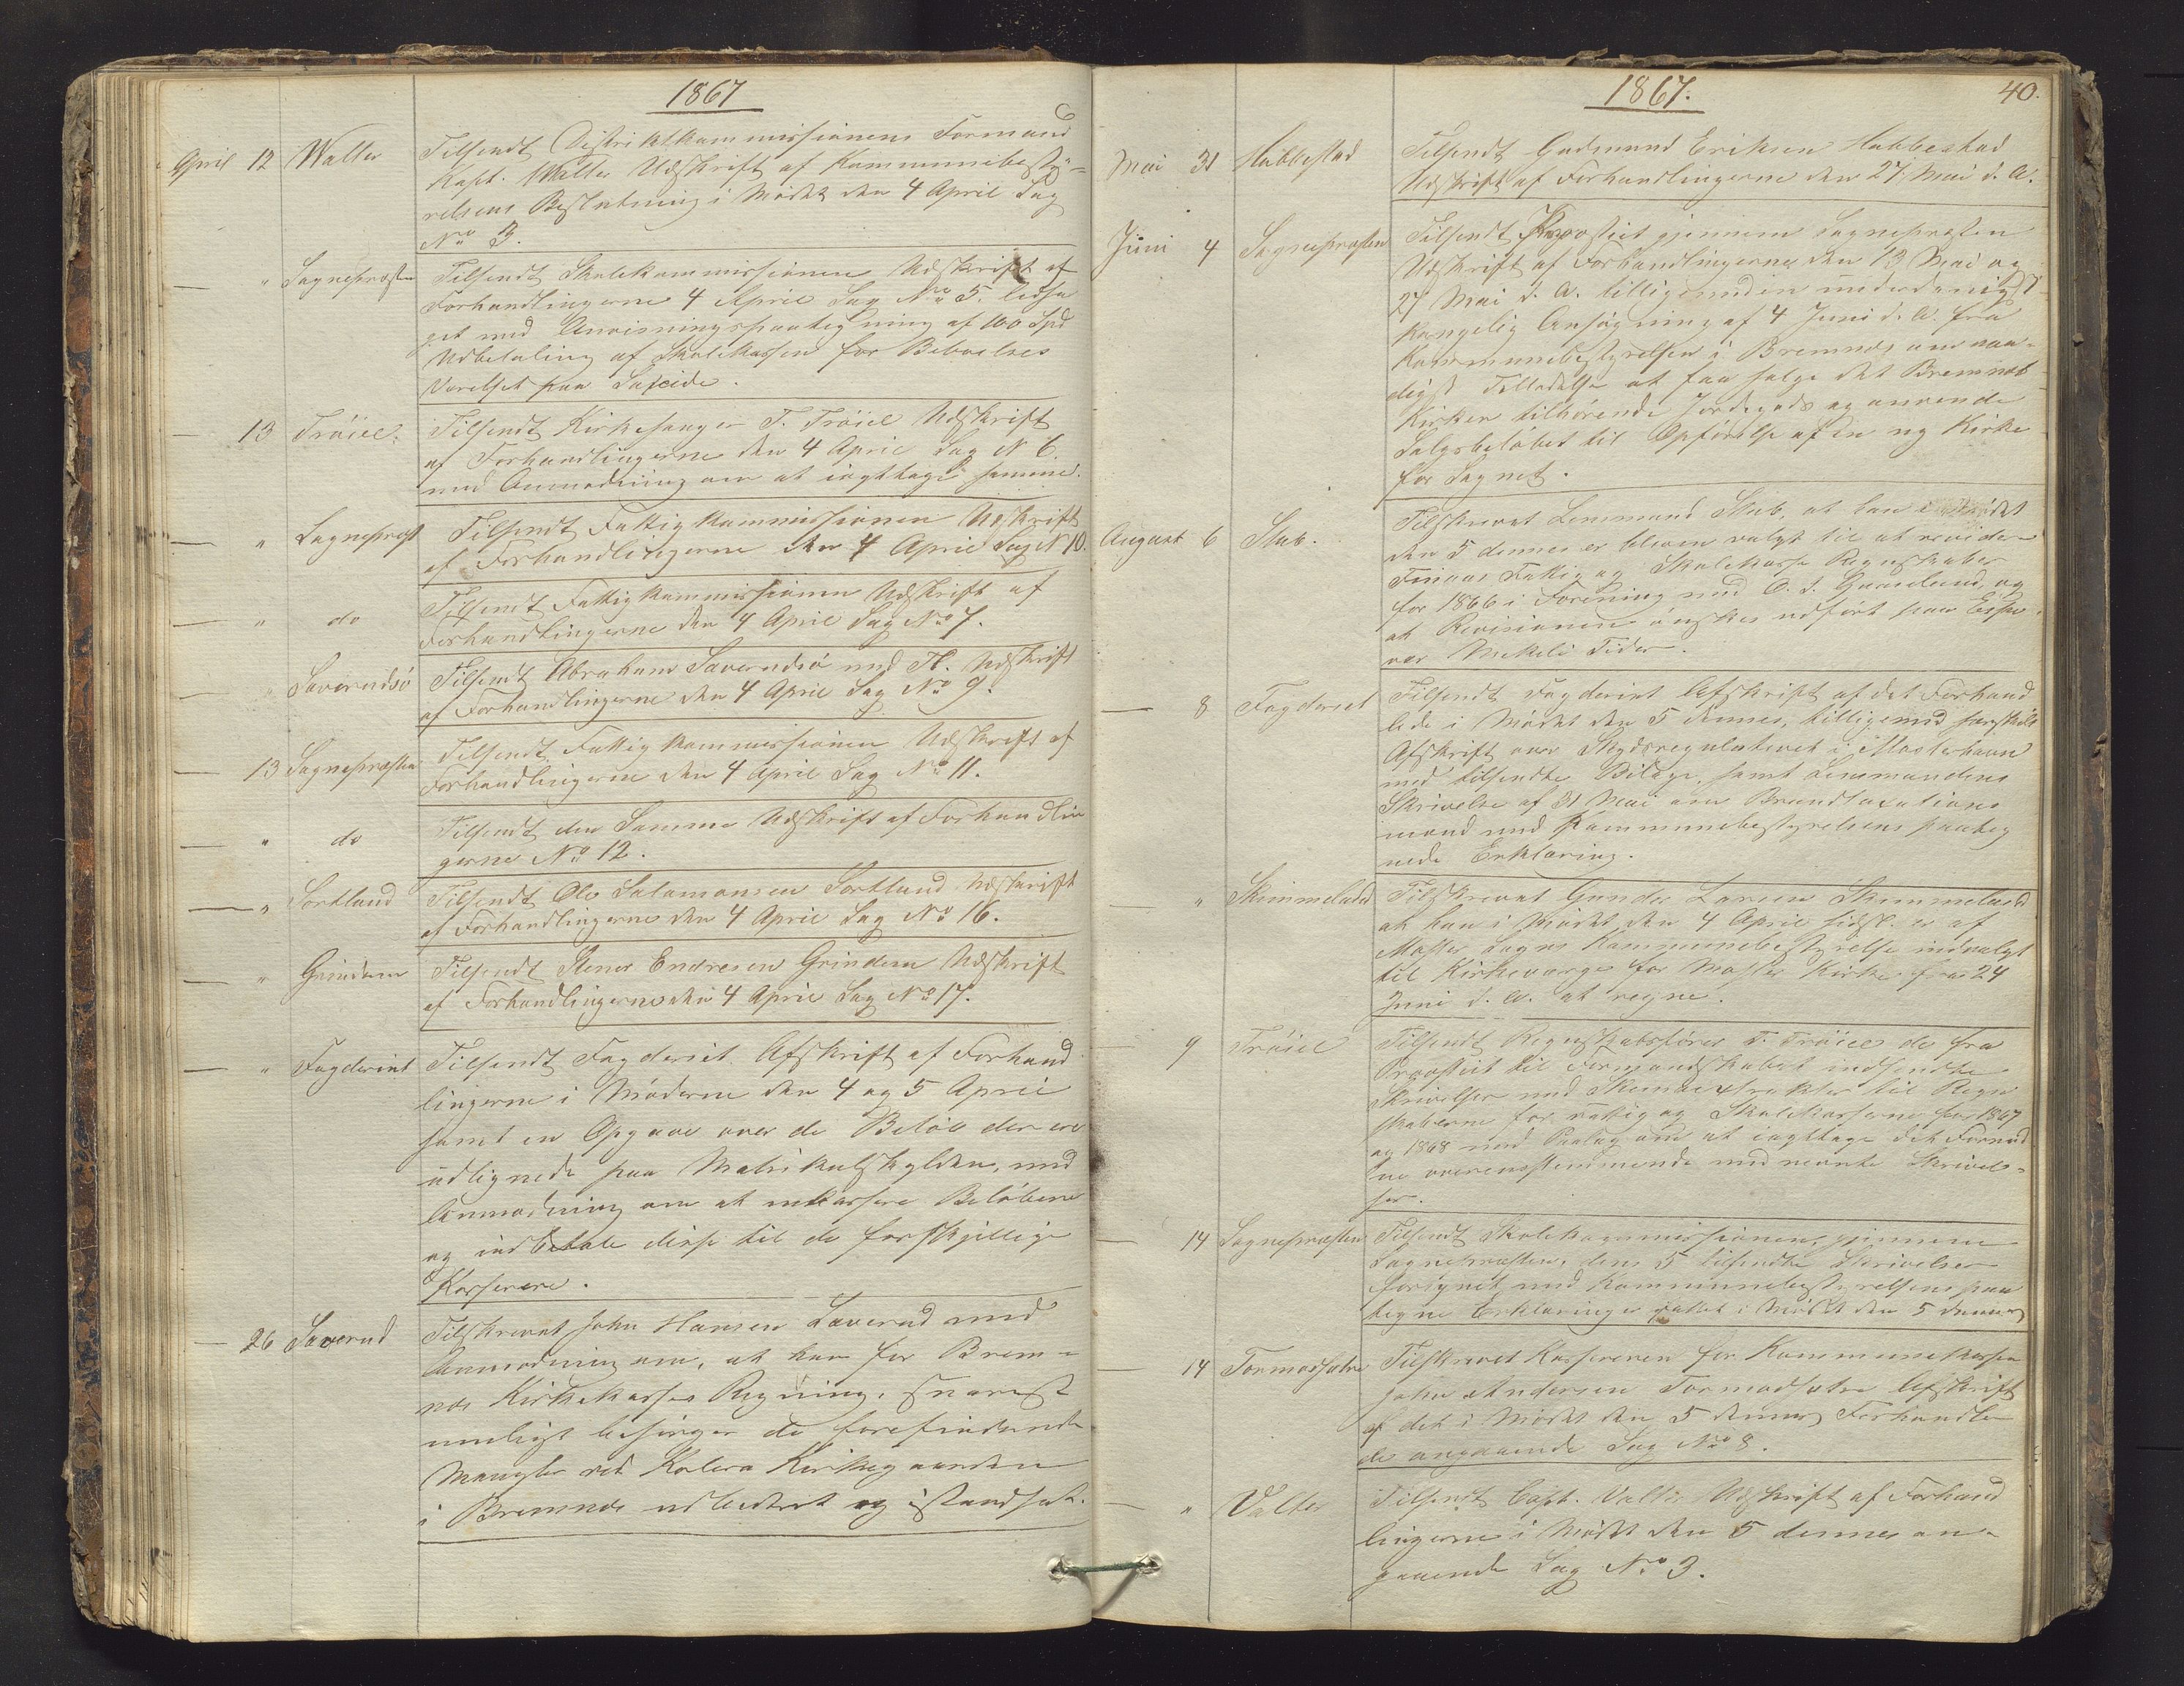 1867
April 12 Walter Tilsendt Distriktskommissionens Formand
Kapt. Walter Udskrift af Kommunebesty-
relsens Beslutning i Mødet den 4 April Sag
No 3.
— " Sognepræsten Tilsendt Skolekommissionen Udskrift af
Forhandlingerne 4 April Sag No 5. ledsa
get med Anvisningspaategning af 100 Spd
Udbetaling af Skolekassen for Beboelses
Værelset paa
— 13 Trøiel. Tilsendt Kirkesanger T. Trøiel Udskrift
af Forhandlingerne den 4 April Sag N 6.
med Anmodning om at iagttage samme.
" Sognepræst Tilsendt Fattigkommissionen Udskrift
af Forhandlingerne den 4 April Sag N 10.
— " do Tilsendt Fattigkommissionen Udskrift af
Forhandlingerne den 4 April Sag No 7.
— " Laverudsø Tilsendt Abraham Laverudsø med Fl. Udskrift
af Forhandlingerne den 4 April Sag No 9.
— 13 Sognepræsten Tilsendt Fattigkommissionen Udskrift af
Forhandlingerne den 4 April Sag No 11.
— " do Tilsendt den Samme Udskrift af Forhandlin
gerne No 12.
— " Sortland Tilsendt Ole Salamonsen Sortland Udskrift
af Forhandlingerne den 4 April Sag No 16.
— " Grindem Tilsendt Stener Endresen Grindem Udskrift
af Forhandlingerne den 4 April Sag No 17.
— " Fogderiet Tilsendt Fogderiet Afskrift af Forhand
lingerne i Møderne den 4 og 5 April
samt en Opgave over de Beløb der ere
udlignede paa Matrikulskylden, med
Anmodning om at inkassere Beløbene
og indbetale disse til de forskjellige
Kasserere.
— 26 Laverud Tilskrevet John Hansen Laverud med
Anmodning om, at han for Brem-
næs Kirkekasses Regning, snarest
muligt besørger de forefindende
Mangler ved Kolera Kirkegaarden
i Bremnæs udbedret og istandsat.
1867. 40.
Mai 31 Habbestad Tilsendt Gudmund Eriksen Habbestad
Udskrift af Forhandlingerne den 27 Mai d. A.
Juni 4 Sognepræsten Tilsendt Provstiet gjennem Sognepræsten
Udskrift af Forhandlingerne den 13 Mai og
27 Mai d. A. tilligemed en underdanigst
kongelig Ansøgning af 4 Juni d. A. fra
Kommunebestyrelsen i Bremnæs om naa-
digst Tilladelse at faa sælge det Bremnæs
Kirken tilhørende Jordegods og anvende
Salgsbeløbet til Opførelse af en ny Kirke
for Sognet.
August 6 Stub. Tilskrevet Lensmand Stub, at han i Mødet
den 5 dennes er bleven valgt til at revidere
Finaas Fattig og Skolekasse Regnskaber
for 1866 i Forening med O. J. og
at Revisionen ønskes udført paa Espe
vær Mikeli Tider.
— 8 Fogderiet Tilsendt Fogderiet Afskrift af det Forhand
lede i Mødet den 5 dennes, tilligemed særskilt
Afskrift over Skydsregulativet i Mosterhavn
med tilsendte Bilage, samt Lensmandens
Skrivelse af 31 Mai om Brandtaxations
mænd med Kommunebestyrelsens paateg
nede Erklæring.
— " Skimmeland Tilskrevet Gunder Larsen Skimmeland
at han i Mødet den 4 April sidstl. er af
Moster Sogns Kommunebestyrelse indvalgt
til Kirkeværge for Moster Kirke fra 24
Juni d. A. at regne.
— 9 Trøiel Tilsendt Regnskabsfører T. Trøiel de fra
Provstiet til Formandskabet indsendte
Skrivelser med Skemaextrakter til Regn
skaberne for Fattig og Skolekasserne for 1867
og 1868 med Paalæg om at iagttage det Fornød
ne overensstemmende med nævnte Skrivel-
ser.
— 14 Sognepræsten Tilsendt Skolekommissionen, gjennem
Sognepræsten, dens 5 tilsendte Skrivelser
forsynet med Kommunebestyrelsens paa
tegne Erklæringer fattet i Mødet den 5 dennes
— 14 Tormodsætre Tilskrevet Kassereren for Kommunekassen
John Andersen Tormodsætre Afskrift
af det i Mødet den 5 dennes Forhandle
de angaaende Sag No 8.
— " Valter Tilsendt Capt. Valter Udskrift af Forhand
lingerne i Mødet den 5 dennes an-
gaaende Sag No 3.